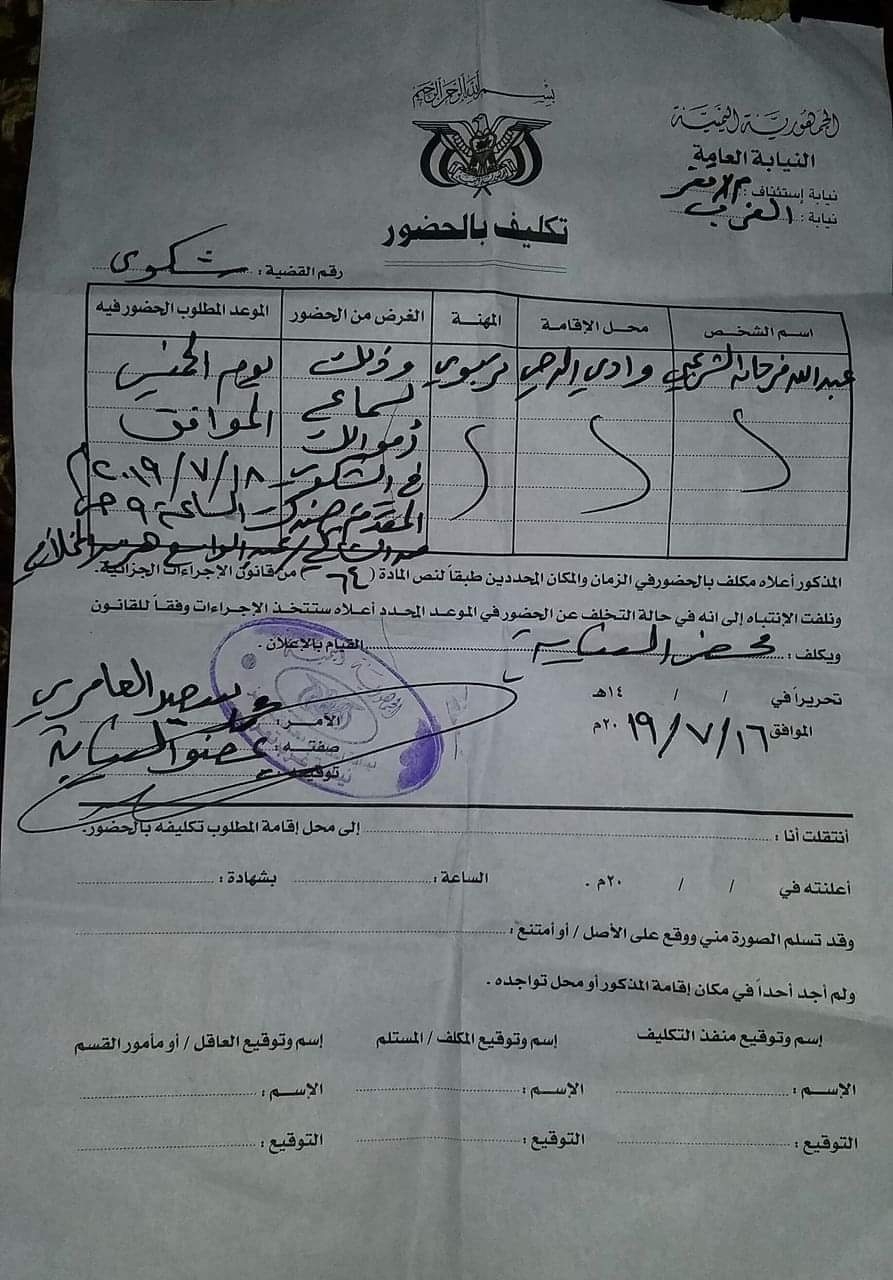 بسم الله الرحمن الرحيم
الجمهورية اليمنية
النيابة العامة
نيابة إستئناف :
نيابة :
تكليف بالحضور
رقم القضية : شكوى
اسم الشخص
محل الإقامة
المهنة
الغرض من الحضور
الموعد المطلوب الحضور فيه
عبدالله فرحان الشرعبي
وادي
تربوي
وذلك
لسماع
في الشكوى
المقدمة ضدك
من الشاكي / عبد
يوم الخميس
الموافق
١٨/٧/٢٠١٩م
الساعة ٩ ص
المذكور أعلاه مكلف بالحضور في الزمان والمكان المحددين طبقاً لنص المادة ( ٦٤ ) من قانون الإجراءات الجزائية.
ونلفت الإنتباه إلى انه في حالة التخلف عن الحضور في الموعد المحدد أعلاه ستتخذ الإجراءات وفقاً للقانون
ويكلف : محضر النيابة القيام بالإعلان .
تحريراً في / / ١٤هـ
الموافق ١٦/٧/٢٠١٩م
الأمر : سعيد العامري
صفته : عضو النيابة
توقيعه :
أنتقلت أنا : إلى محل إقامة المطلوب تكليفه بالحضور.
أعلنته في / / ٢٠م . الساعة : بشهادة :
وقد تسلم الصورة مني ووقع على الأصل / أو أمتنع :
ولم أجد أحداً في مكان إقامة المذكور أو محل تواجده .
إسم وتوقيع منفذ التكليف
إسم وتوقيع المكلف / المستلم
إسم وتوقيع العاقل / أو مأمور القسم
الإسم : الإسم : الإسم :
التوقيع : التوقيع : التوقيع :